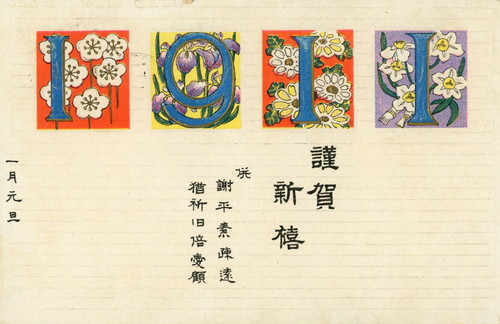 1911
謹賀
新禧
併
謝平素疎遠
猶祈旧倍愛顧
一月元旦